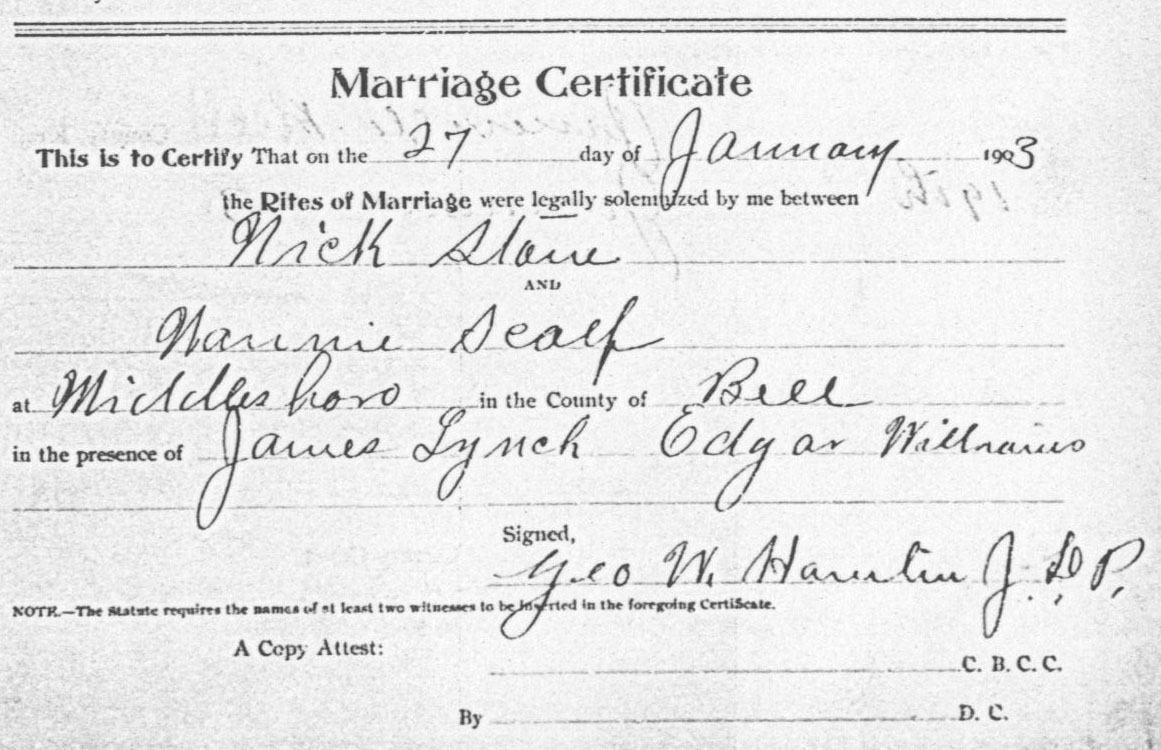 Marriage Certificate
This is to Certify That on the 27 day of January 1903
the Rites of Marriage were legally solemnized by me between
Nick Stone
AND
Nannie Scalf
at Middlesboro in the County of Bell
in the presence of James Lynch Edgar Williams
Signed,
Geo W. J. P.
NOTE.—The Statute requires the names of at least two witnesses to be inserted in the foregoing Certificate.
A Copy Attest:
C. B. C. C.
By D. C.